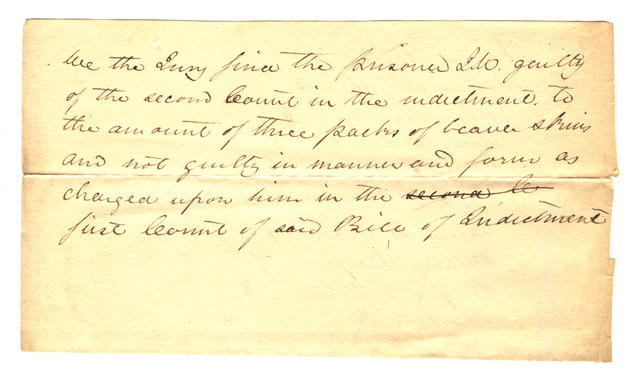 We the Jury find the prisoner J.W. guilty
of the second Count in the indictment. to
the amount of three packs of beaver skins
and not guilty in manner and form as
charged upon him in the second Co
first Count of said Bill of Indictment